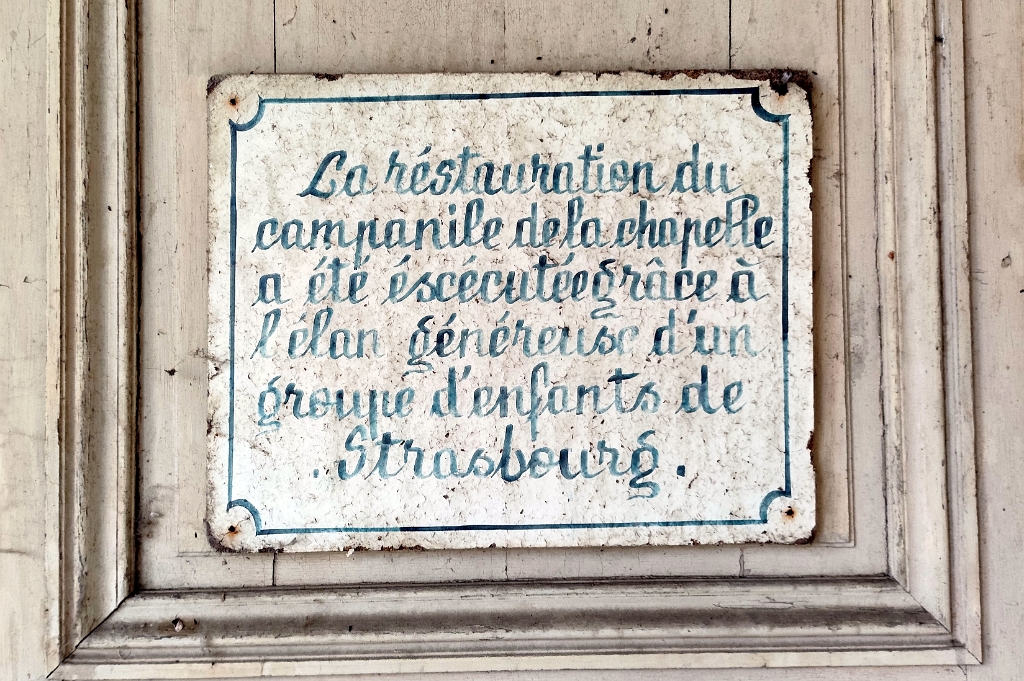 La réstauration du
campanile de la chapelle
a été éscécutée grâce à
l'élan généreuse d'un
groupe d'enfants de
. Strasbourg .